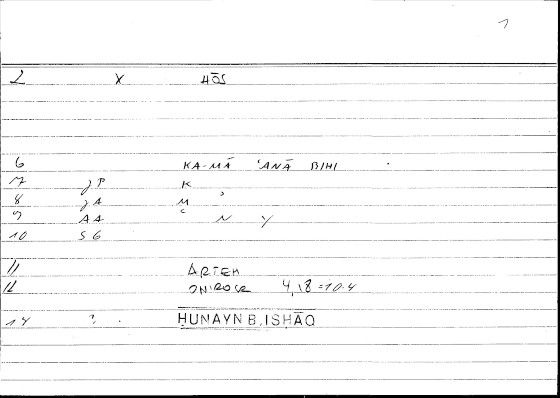 1
2 X HŌS
6 KA-MĀ ʿANĀ BIHI
7 jP K
8 jA M
9 AA N Y
10 SG
11 ARTEM
12 ONIROCR 4,18 = 10.4
14 ? . ḤUNAYN B. ISḤĀQ